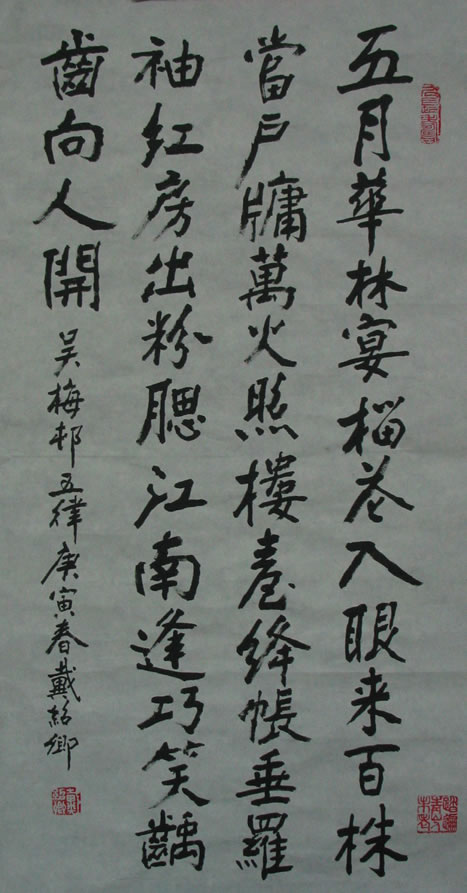 五月華林宴榴花入眼来百株
當戶牖萬火照樓臺絳帳垂羅
袖紅房出粉腮江南逢巧笑齲
齒向人開
吳梅邨五律庚寅春戴紹卿